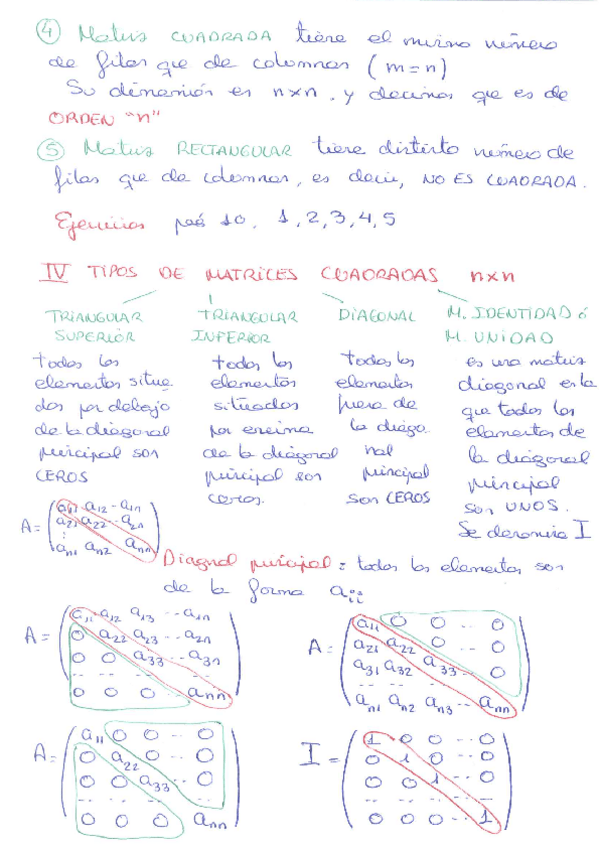 ④ Matriz CUADRADA tiene el mismo número
de filas que de columnas (m=n)
Su dimensión es n×n, y decimos que es de
ORDEN "n"
⑤ Matriz RECTANGULAR tiene distinto número de
filas que de columnas, es decir, NO ES CUADRADA.
Ejercicios pág 10. 1, 2, 3, 4, 5
IV TIPOS DE MATRICES CUADRADAS n×n
TRIANGULAR
SUPERIOR
todos los
elementos situa
dos por debajo
de la diagonal
principal son
CEROS
TRIANGULAR
INFERIOR
todos los
elementos
situados
por encima
de la diagonal
principal son
ceros.
DIAGONAL
todos los
elementos
fuera de
la diago
nal
principal
son CEROS
M. IDENTIDAD ó
M. UNIDAD
es una matriz
diagonal en la
que todos los
elementos de
la diagonal
principal
son UNOS.
Se denomina I
A = (a11 a12 .. a1n
a21 a22 ... a2n
⋮
an1 an2 ann)
Diagonal principal = todos los elementos son
de la forma aii
A = (a11 a12 a13 ... a1n
0 a22 a23 ... a2n
0 0 a33 ... a3n
... ... ...
0 0 0 ann)
A = (a11 0 0 ... 0
a21 a22 0 ... 0
a31 a32 a33 ... 0
... ... ...
an1 an2 an3 ... ann)
A = (a11 0 0 ... 0
0 a22 0 ... 0
0 0 a33 ... 0
... ... ...
0 0 0 ann)
I = (1 0 0 ... 0
0 1 0 ... 0
0 0 1 ... 0
... ... ...
0 0 0 ... 1)